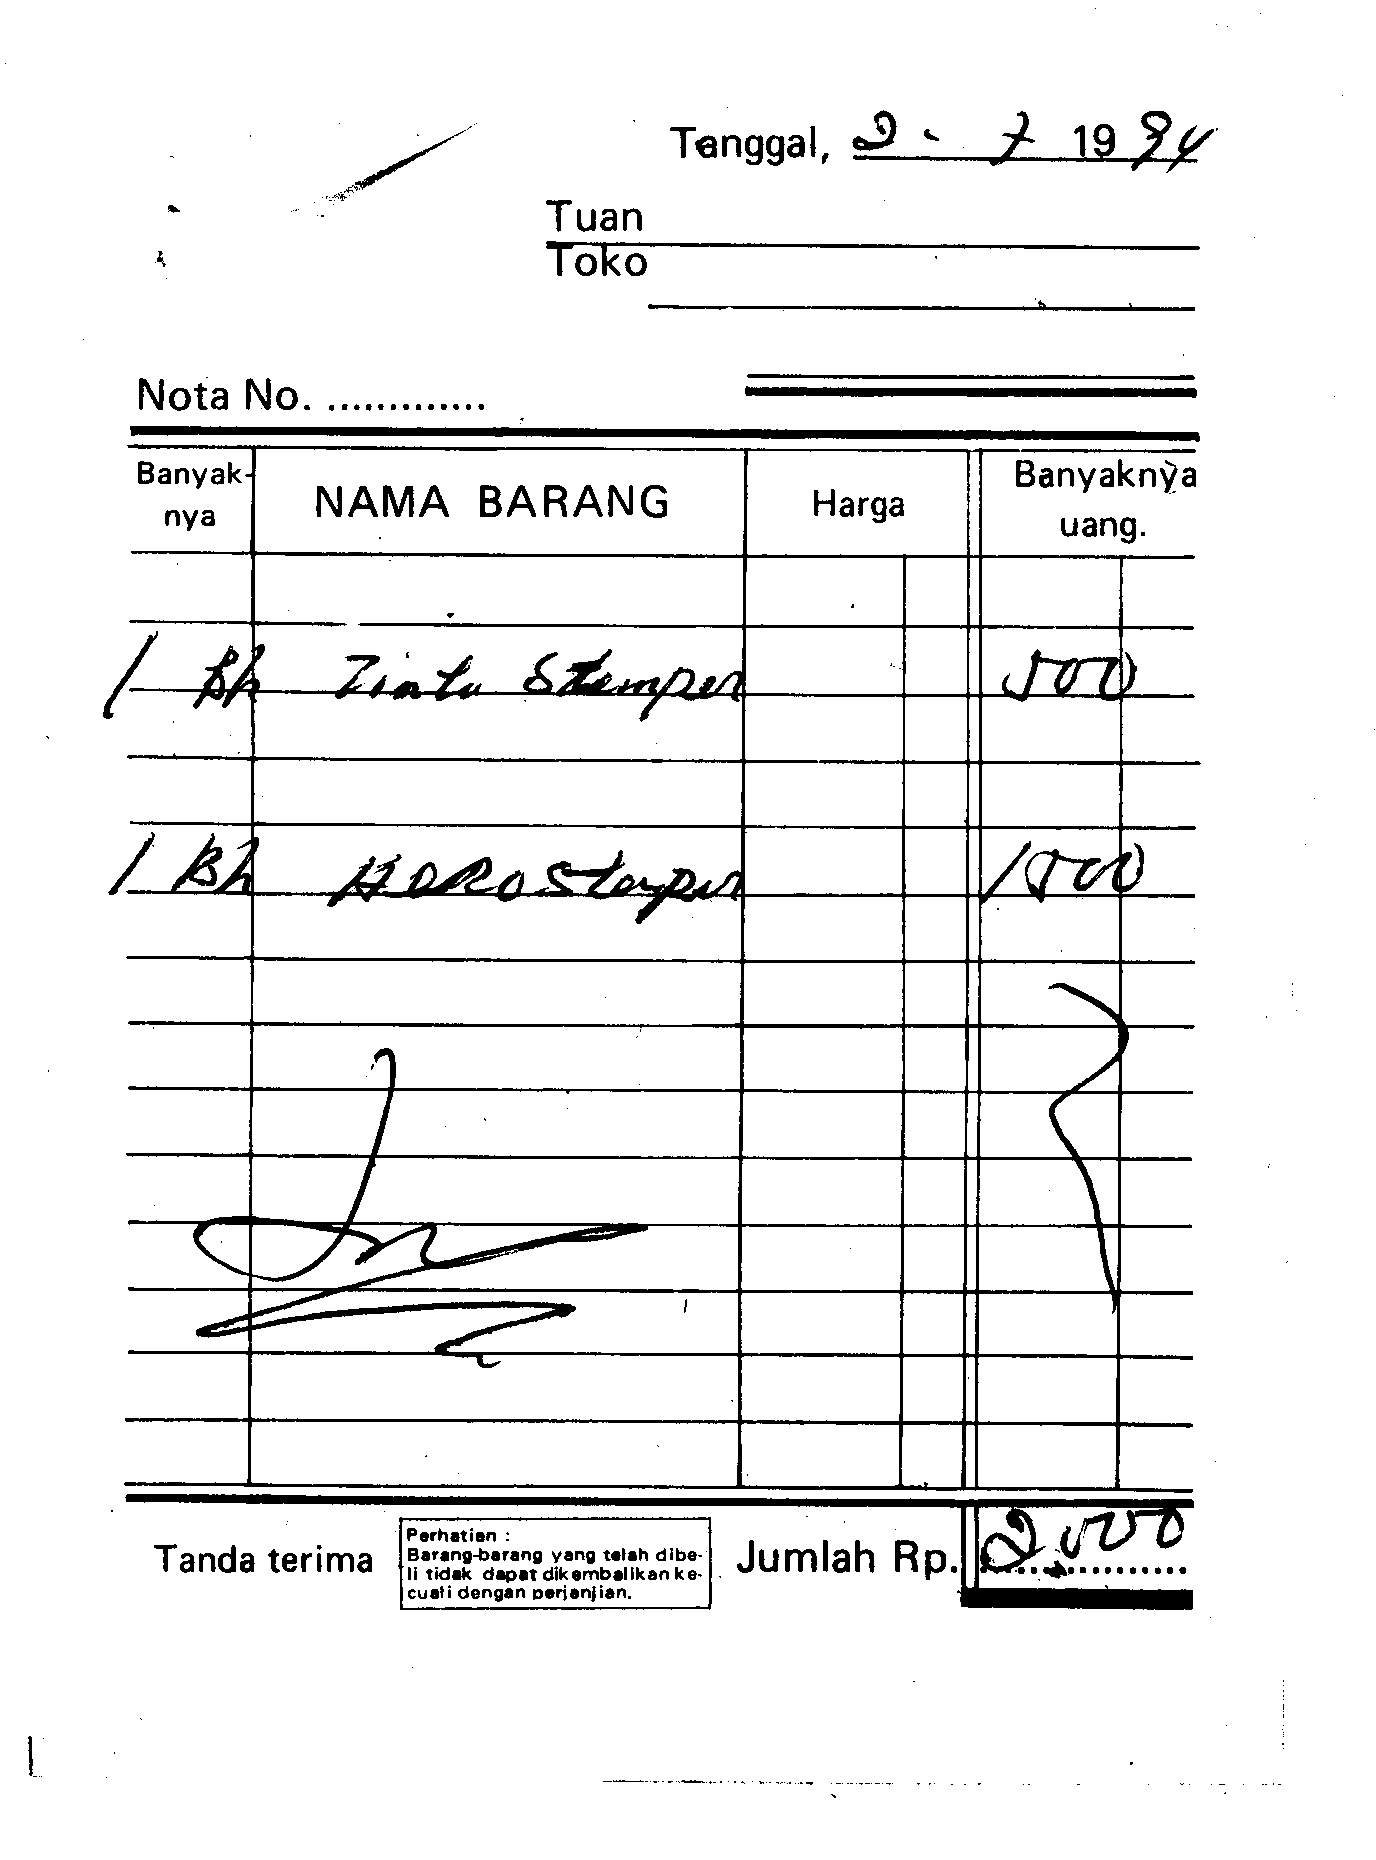 Tanggal, 2 - 7 1994
Tuan
Toko
Nota No. .............
Banyak-nya NAMA BARANG Harga Banyaknya uang.
1 Bh Tinta Stempel 500
1 Bh Stempel 1500
Tanda terima
Perhatian :
Barang-barang yang telah dibe-
li tidak dapat dikembalikan ke-
cuali dengan perjanjian.
Jumlah Rp. 2.000